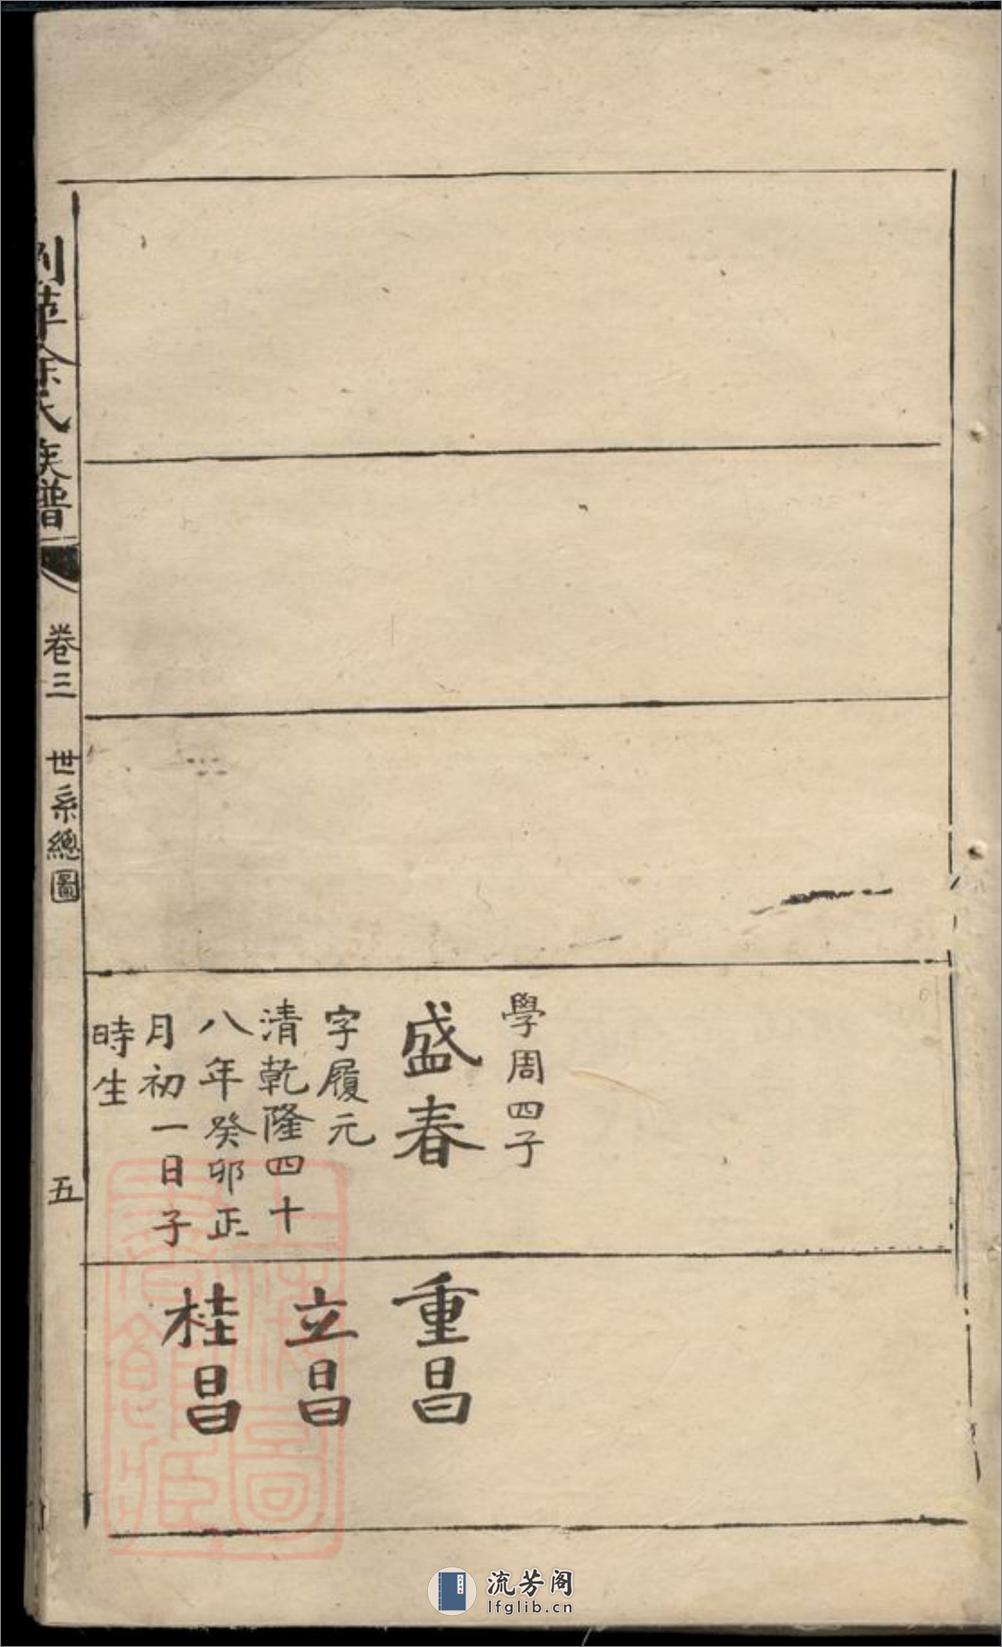 學周四子
盛春
字履元
清乾隆四十
八年癸卯正
月初一日子
時生
重昌
立昌
桂昌
徐氏族譜
卷三
世系總圖
五
上海圖
書館藏
流芳阁
lfglib.cn